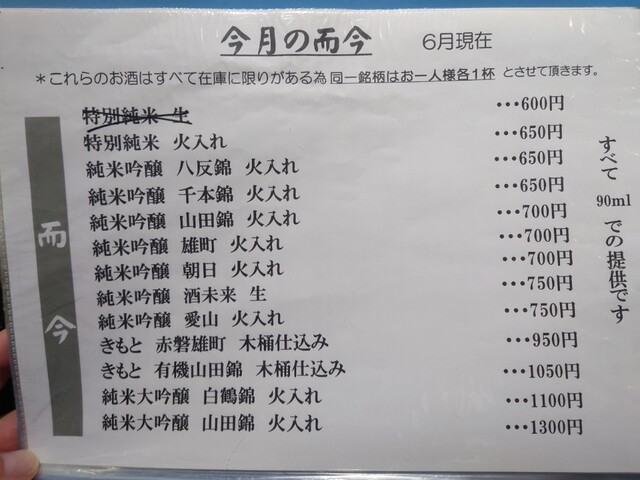 今月の而今 6月現在
＊これらのお酒はすべて在庫に限りがある為 同一銘柄はお一人様各1杯 とさせて頂きます。
特別純米 生 ･･･600円
特別純米 火入れ ･･･650円
純米吟醸 八反錦 火入れ ･･･650円
純米吟醸 千本錦 火入れ ･･･650円
純米吟醸 山田錦 火入れ ･･･700円
純米吟醸 雄町 火入れ ･･･700円
純米吟醸 朝日 火入れ ･･･700円
純米吟醸 酒未来 生 ･･･750円
純米吟醸 愛山 火入れ ･･･750円
きもと 赤磐雄町 木桶仕込み ･･･950円
きもと 有機山田錦 木桶仕込み ･･･1050円
純米大吟醸 白鶴錦 火入れ ･･･1100円
純米大吟醸 山田錦 火入れ ･･･1300円
而今
すべて 90ml での提供です